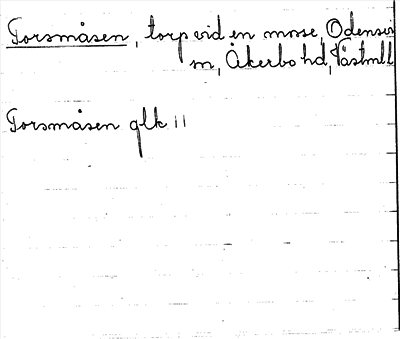 Forsmåsen, torp vid en mosse, Odensvi
sn, Åkerbo hd, Västmll
Forsmåsen glk 11